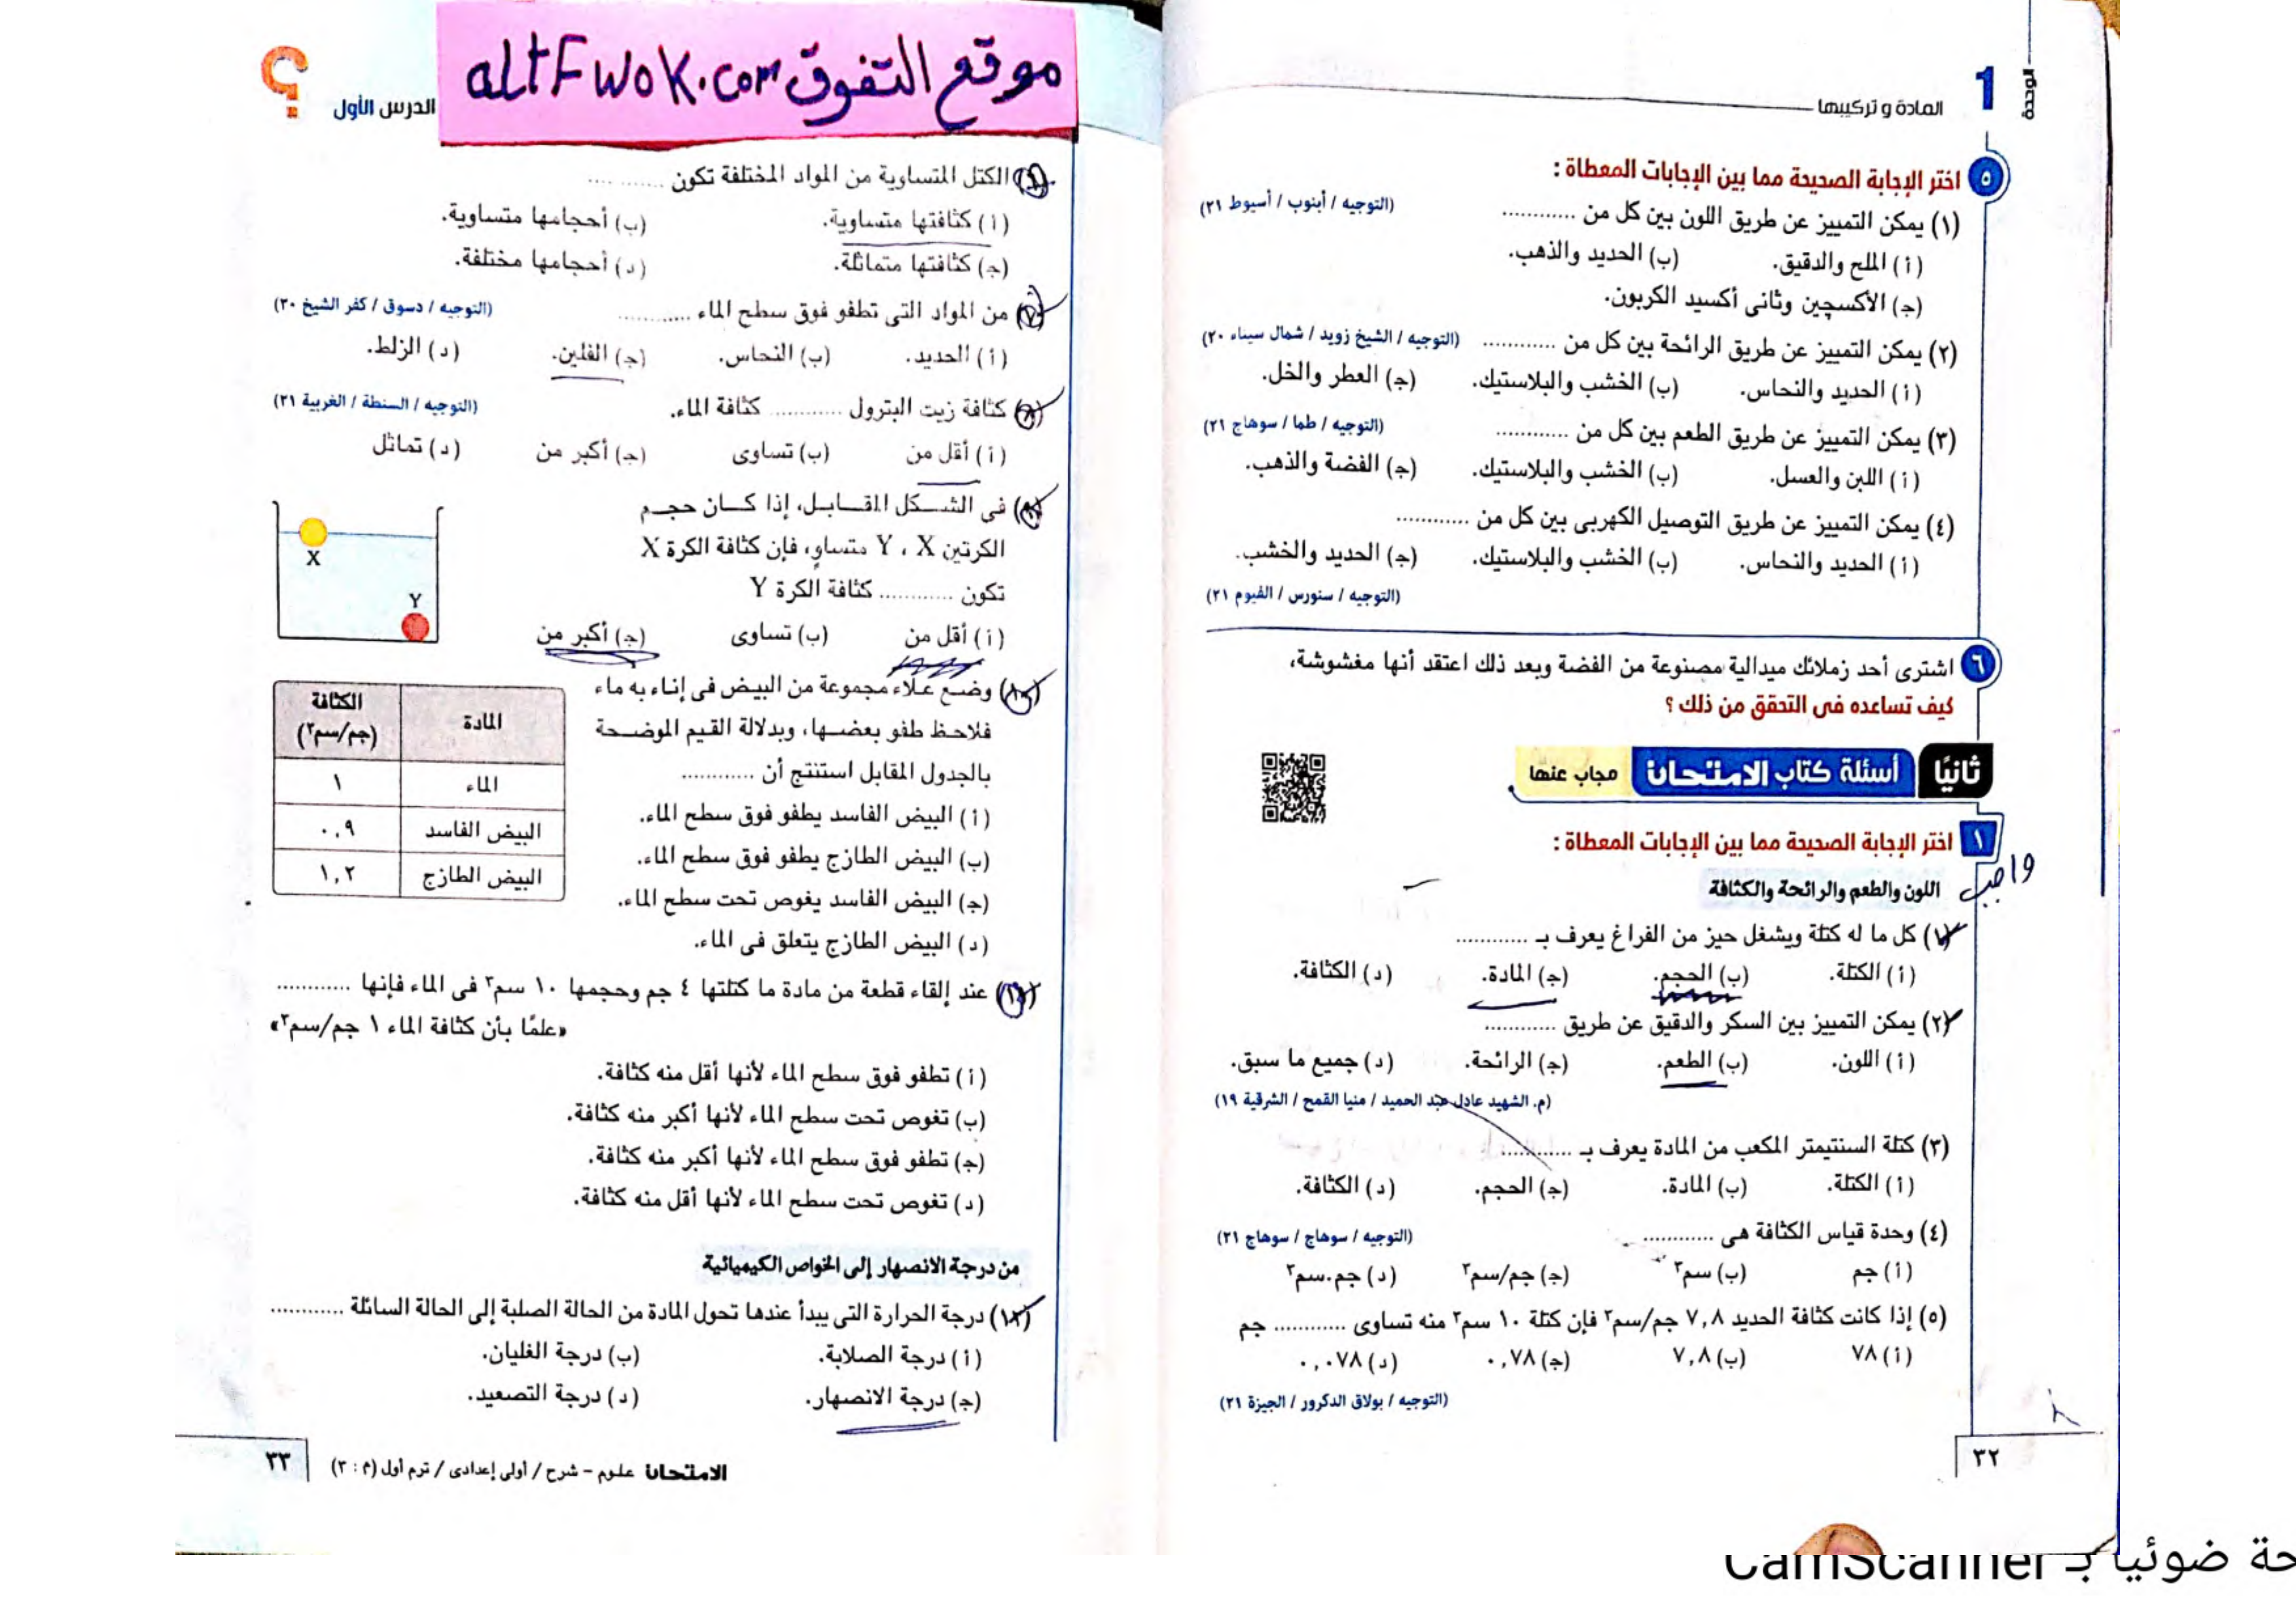 الوحدة
1
المادة و تركيبها
٥ اختر الإجابة الصحيحة مما بين الإجابات المعطاة :
(١) يمكن التمييز عن طريق اللون بين كل من ............ (التوجيه / أبنوب / أسيوط ٢١)
(أ) الملح والدقيق. (ب) الحديد والذهب.
(جـ) الأكسچين وثانى أكسيد الكربون.
(٢) يمكن التمييز عن طريق الرائحة بين كل من ............ (التوجيه / الشيخ زويد / شمال سيناء ٢٠)
(أ) الحديد والنحاس. (ب) الخشب والبلاستيك. (جـ) العطر والخل.
(٣) يمكن التمييز عن طريق الطعم بين كل من ............ (التوجيه / طما / سوهاج ٢١)
(أ) اللبن والعسل. (ب) الخشب والبلاستيك. (جـ) الفضة والذهب.
(٤) يمكن التمييز عن طريق التوصيل الكهربى بين كل من ............
(أ) الحديد والنحاس. (ب) الخشب والبلاستيك. (جـ) الحديد والخشب.
(التوجيه / سنورس / الفيوم ٢١)
٦ اشترى أحد زملائك ميدالية مصنوعة من الفضة وبعد ذلك اعتقد أنها مغشوشة،
كيف تساعده فى التحقق من ذلك ؟
ثانيًا أسئلة كتاب الامتحان مجاب عنها
١ اختر الإجابة الصحيحة مما بين الإجابات المعطاة :
واجب
اللون والطعم والرائحة والكثافة
(١) كل ما له كتلة ويشغل حيز من الفراغ يعرف بـ ............
(أ) الكتلة. (ب) الحجم. (جـ) المادة. (د) الكثافة.
(٢) يمكن التمييز بين السكر والدقيق عن طريق ............
(أ) اللون. (ب) الطعم. (جـ) الرائحة. (د) جميع ما سبق.
(م. الشهيد عادل عبد الحميد / منيا القمح / الشرقية ١٩)
(٣) كتلة السنتيمتر المكعب من المادة يعرف بـ ............
(أ) الكتلة. (ب) المادة. (جـ) الحجم. (د) الكثافة.
(٤) وحدة قياس الكثافة هى ............ (التوجيه / سوهاج / سوهاج ٢١)
(أ) جم (ب) سم٣ (جـ) جم/سم٣ (د) جم.سم٣
(٥) إذا كانت كثافة الحديد ٧,٨ جم/سم٣ فإن كتلة ١٠ سم٣ منه تساوى ............ جم
(أ) ٧٨ (ب) ٧,٨ (جـ) ٠,٧٨ (د) ٠,٠٧٨
(التوجيه / بولاق الدكرور / الجيزة ٢١)
٣٢
موقع التفوق altFwok.com
الدرس الأول
؟
(٦) الكتل المتساوية من المواد المختلفة تكون ............
(أ) كثافتها متساوية. (ب) أحجامها متساوية.
(جـ) كثافتها متماثلة. (د) أحجامها مختلفة.
(٧) من المواد التى تطفو فوق سطح الماء ............ (التوجيه / دسوق / كفر الشيخ ٢٠)
(أ) الحديد. (ب) النحاس. (جـ) الفلين. (د) الزلط.
(٨) كثافة زيت البترول ............ كثافة الماء. (التوجيه / السنطة / الغربية ٢١)
(أ) أقل من (ب) تساوى (جـ) أكبر من (د) تماثل
(٩) فى الشكل المقابل، إذا كان حجم
الكرتين X ، Y متساوٍ، فإن كثافة الكرة X
تكون ............ كثافة الكرة Y
(أ) أقل من (ب) تساوى (جـ) أكبر من
X
Y
(١٠) وضع علاء مجموعة من البيض فى إناء به ماء
فلاحظ طفو بعضها، وبدلالة القيم الموضحة
بالجدول المقابل استنتج أن ............
(أ) البيض الفاسد يطفو فوق سطح الماء.
(ب) البيض الطازج يطفو فوق سطح الماء.
(جـ) البيض الفاسد يغوص تحت سطح الماء.
(د) البيض الطازج يتعلق فى الماء.
المادة الكثافة (جم/سم٣)
الماء ١
البيض الفاسد ٠,٩
البيض الطازج ١,٢
(١١) عند إلقاء قطعة من مادة ما كتلتها ٤ جم وحجمها ١٠ سم٣ فى الماء فإنها ............
«علمًا بأن كثافة الماء ١ جم/سم٣»
(أ) تطفو فوق سطح الماء لأنها أقل منه كثافة.
(ب) تغوص تحت سطح الماء لأنها أكبر منه كثافة.
(جـ) تطفو فوق سطح الماء لأنها أكبر منه كثافة.
(د) تغوص تحت سطح الماء لأنها أقل منه كثافة.
من درجة الانصهار إلى الخواص الكيميائية
(١٢) درجة الحرارة التى يبدأ عندها تحول المادة من الحالة الصلبة إلى الحالة السائلة ............
(أ) درجة الصلابة. (ب) درجة الغليان.
(جـ) درجة الانصهار. (د) درجة التصعيد.
الامتحان علوم - شرح / أولى إعدادى / ترم أول (م : ٣) ٣٣
ضوئيا بـ CamScanner